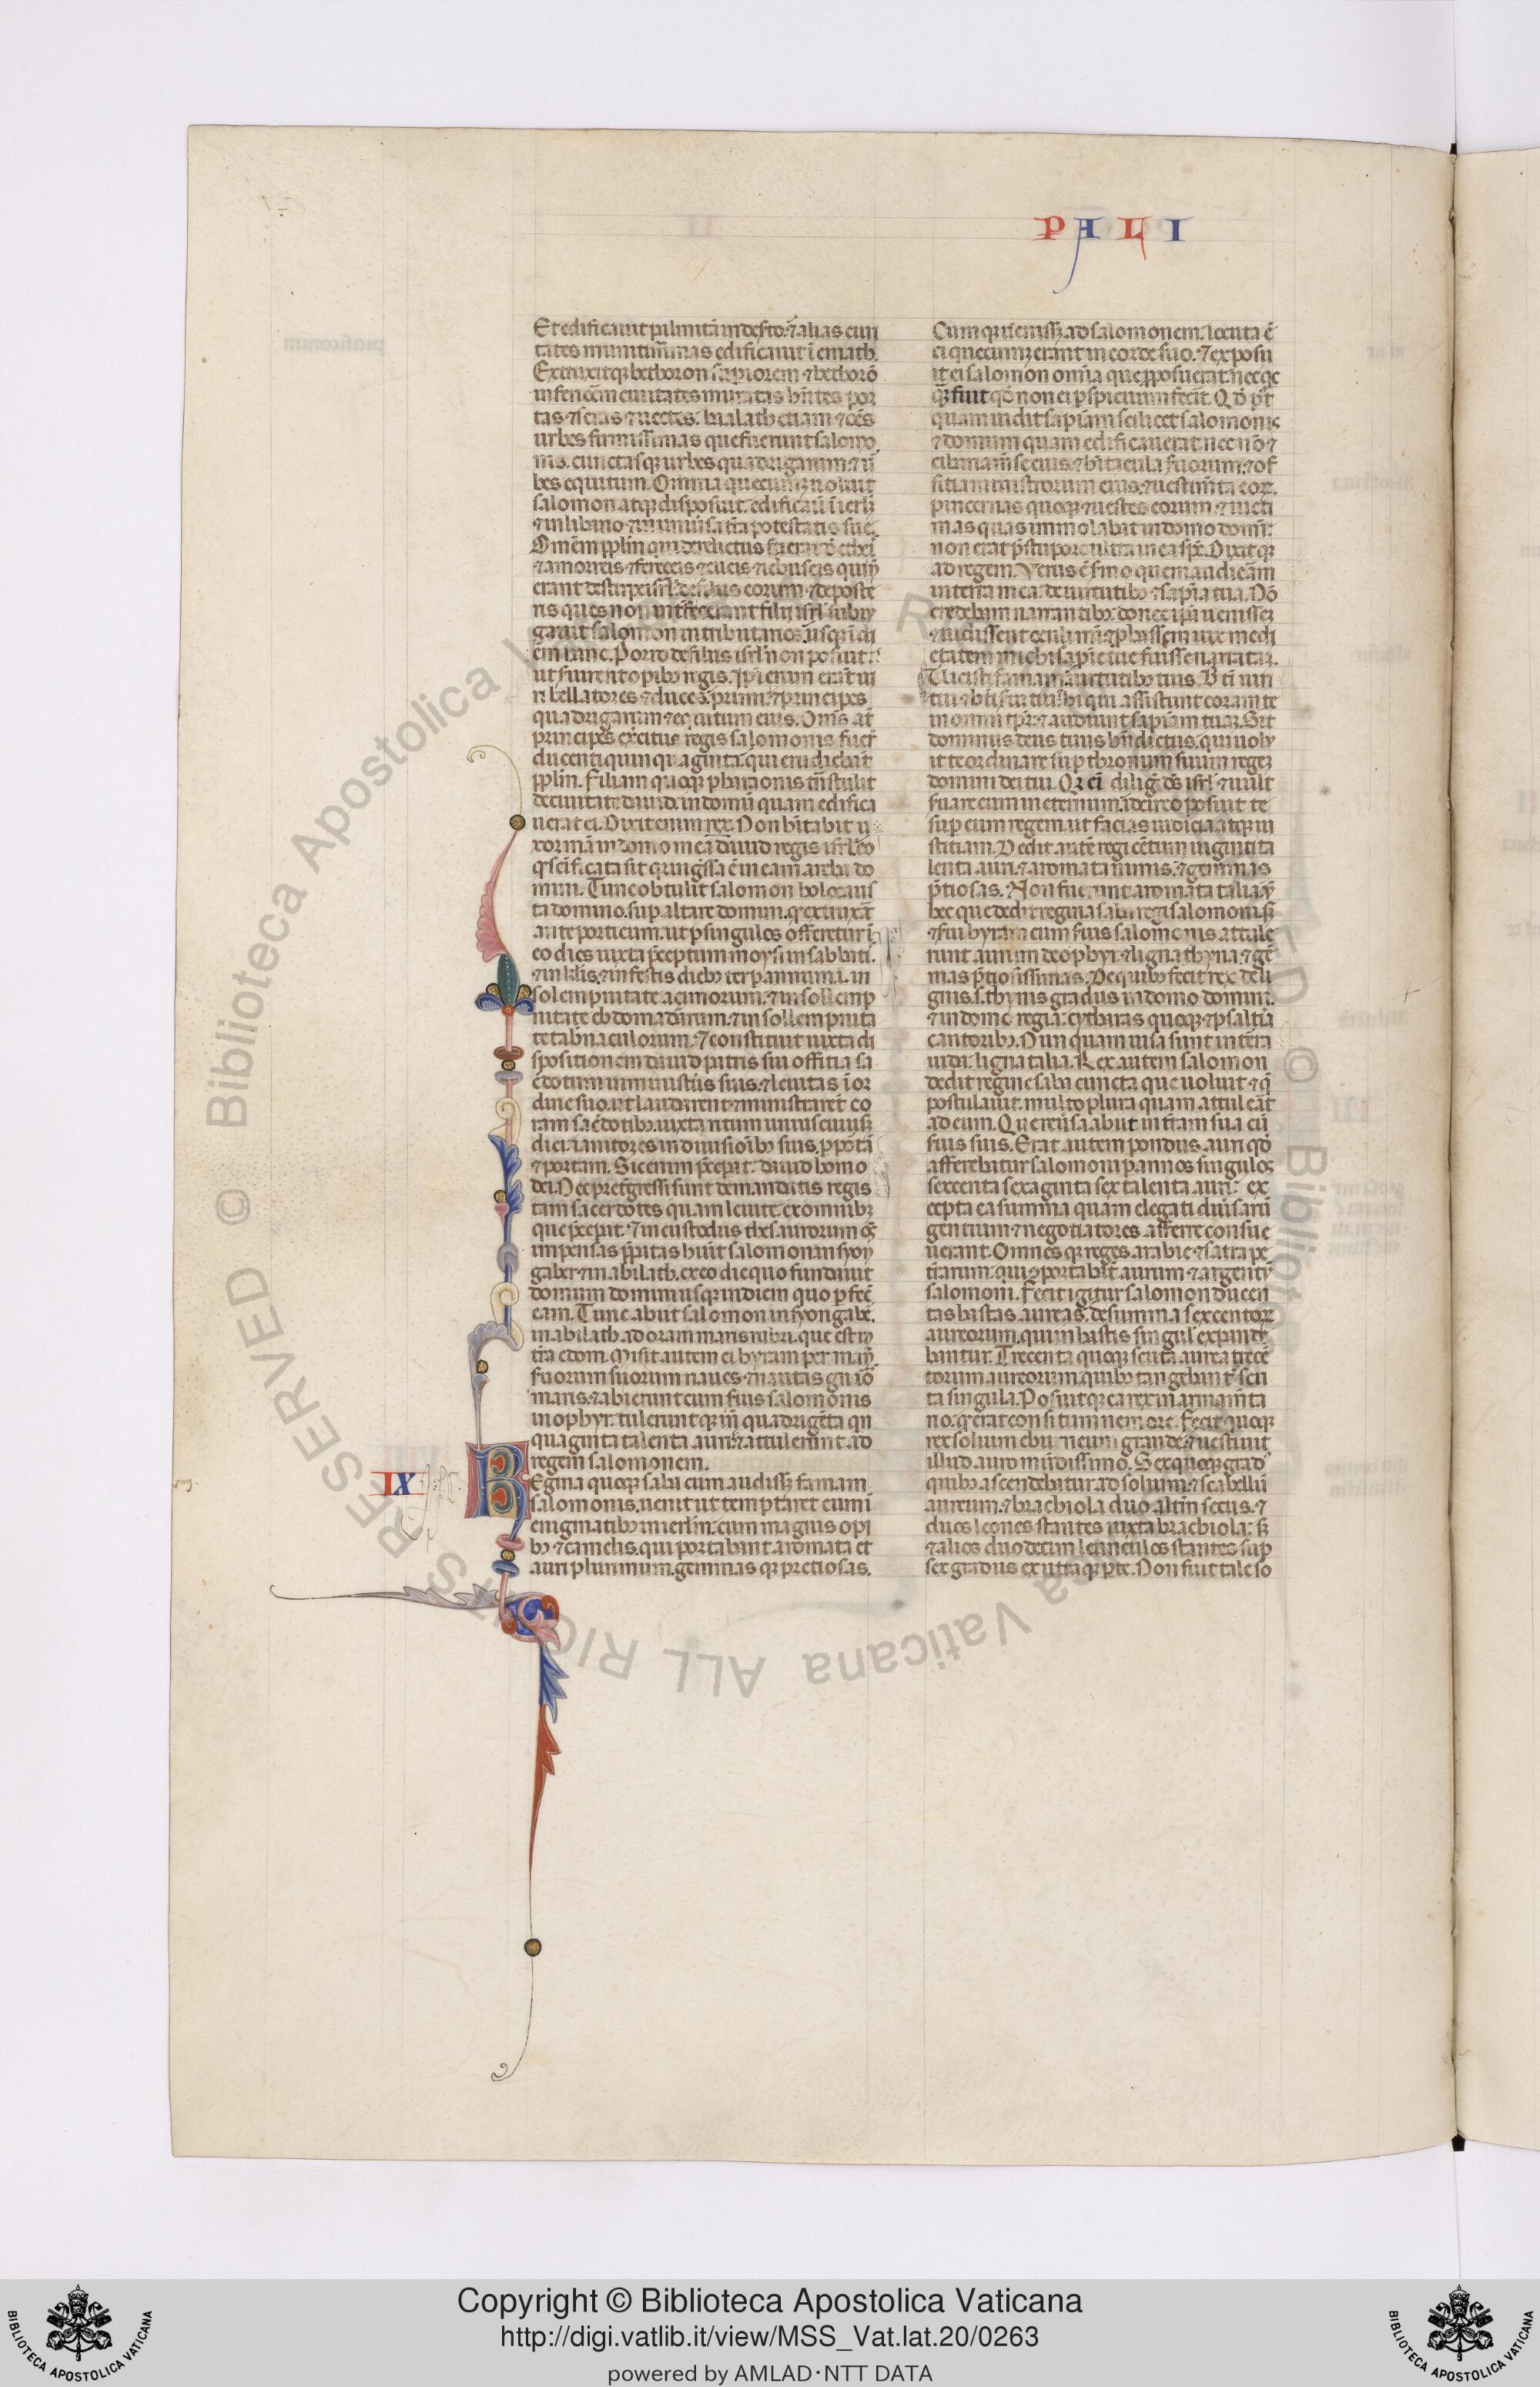 PALI
Et edificauit palmirā in deſ̄to. ⁊ alias ciui
tates munitiſſimas edificauit ī emath.
Extruxitqꝫ bethoron sup̄iorem ⁊ bethorō
inferiorē ciuitates muratas hn̄tes por
tas ⁊ seras ⁊ uectes. balath etiam ⁊ oēs
urbes firmiſſimas que fuerunt salomo
nis. cunctasqꝫ urbes quadrigarum. ⁊ ur
bes equitum. Omnia quecumqꝫ uoluit
salomon atqꝫ disposuit. edificauit ī ierlꝫ
⁊ in libano ⁊ in uniūsa tr̄a potestatis sue.
Omēm pplm̄ qui derelictus fuerat de etheis
⁊ amorreis ⁊ ferezeis ⁊ eueis ⁊ iebuseis qui nō
erant de stirpe isrl̄. de filiis eorum ⁊ de poste
ris quos non int̄fecerant filii isrl̄ subiu
gauit salomon in tributarios. usqꝫ in di
em hanc. Porro de filiis isrl̄ non posuit
ut ſuirent opibꝫ regis. Ipi enim erāt ui
ri bellatores ⁊ duces primi. ⁊ principes
quadrigarum ⁊ equitum eius. Oms̄ aūt
principes exercitus regis salomonis fuer̄
ducenti quinquaginta. qui erudiebāt
pplm̄. Filiam quoqꝫ pharaonis trn̄stulit
de ciuitate dauid. in domū quam edifica
uerat ei. Dixit enim rex. Non habitabit u
xor mā in domo mea dauid regis isrl̄. eo
ꝙ sc̄ificata sit quia ingressa ē in eam archa do
mini. Tunc obtulit salomon holocaus
ta domino. sup altare domini. ꝙ extruxāt
ante porticum. ut ꝑ singulos offeretur ī
eo dies iuxta p̄ceptum moysi in sabbatis.
⁊ in kl̄is. ⁊ in festis diebꝫ ter ꝑ annum. i. in
solempnitate acimorum. ⁊ in sollemp
nitate ebdomadarum. ⁊ in sollempnita
te tabn̄aculorum. ⁊ constituit iuxta di
spositionem dauid patris sui offitia sa
c̄dotum in ministeriis suis. ⁊ leuitas ī or
dine suo. ut laudarent ⁊ ministrarēt co
ram sac̄dotibꝫ. iuxta ritum uniuscuiusqꝫ
diei. ianitores in diuisionibꝫ suis. ꝑ portā
⁊ portam. Sic enim p̄cepit dauid homo
dei. Nec pret̄gressi sunt de mandatis regis
tam sacerdotes quam leuite. ex omnibꝫ
que p̄cepit. ⁊ in custodiis thesaurorum. oēs
impensas p̄patas habuit salomon. in asyon
gaber ⁊ in ahilath. ex eo die quo fundauit
domum domini usqꝫ in diem quo perfecit
eam. Tunc abiit salomon in asyongaber.
in ahilath. ad oram maris rubri. que est in
tr̄a edom. Misit autem ei hyram per manū
suorum suorum naues ⁊ nautas gnaros
maris. ⁊ abierunt cum suis salomonis
in ophyr. tuleruntqꝫ inde quadrigēta qui
quaginta talenta auri. ⁊ attulerunt ad
regem salomonem.
IX
Regina quoqꝫ saba cum audiſſꝫ famam
salomonis. uenit ut temptaret eum ī
enigmatibꝫ in ierlm̄. cum magnis opi
bꝫ ⁊ camelis. qui portabant aromata et
auri plurimum. gemmasqꝫ pretiosas.
Cumqꝫ ueniſſꝫ ad salomonem. locuta ē
ei quecumqꝫ erant in corde suo. ⁊ exposu
it ei salomon omnia que ꝓposuerat. nec qc̄
quam fuit qd̄ non ei ꝑspicuum fecit. Qd̄ pꝰt
quam uidit sapiam̄ scilicet salomonis
⁊ domum quam edificauerat. nec nō ⁊
cibaria mense eius. ⁊ habitacula suorum. ⁊ of
fitia ministrorum eius. ⁊ uestim̄ta eorꝫ.
pincernas quoqꝫ ⁊ uestes eorum. ⁊ uicti
mas quas immolabat in domo domini.
non erat p̄ stupore ultra in ea spc. Dixitqꝫ
ad regem. Verus ē ſmo quem audieram
in terra mea. de uirtutibꝫ ⁊ sapia tua. Nō
credebam narrantibꝫ. donec ipā ueniſſem
⁊ uidiſſent oculi mei. ⁊ ꝓbaſſem uix medi
etatem michi sapientie tue fuiſſe narratam.
Vicisti famam uirtutibꝫ tuis. Beati uiri
tui ⁊ beati serui tui. hi qui assistunt coram te
in omni tpr̄e. ⁊ audiunt sapiam̄ tuam. Sit
dominus deus tuus bn̄dictus. qui uolu
it te ordinare sup thronum suum regem
domini dei tui. Qꝛ ei diligit ds̄ isrl̄ ⁊ uult
ſuare eum in eternum. idcirco posuit te
sup eum regem. ut facias iudicia atqꝫ iu
stitiam. Dedit autē regi cētum uiginti ta
lenta auri. ⁊ aromata nimis. ⁊ gemmas
p̄tiosas. Non fuerunt aromata talia ut
hec que dedit regina saba regi salomoni. Sꝫ
⁊ ſui hyram cum suis salomonis attule
runt aurum de ophyr. ⁊ ligna thyna. ⁊ gē
mas p̄tiosiſſimas. De quibꝫ fecit rex de li
gnis. s. thynis gradus in domo domini.
⁊ in domo regia. cytharas quoqꝫ ⁊ psaltia
cantoribꝫ. Nunquam uisa sunt in terra
iuda. ligna talia. Rex autem salomon
dedit regine saba cuncta que uoluit ⁊ q̄
postulauit. multo plura quam attulerat
ad eum. Que reuersa abiit in tr̄am sua cū
suis suis. Erat autem pondus auri. qd̄
afferebatur salomoni ꝑ annos singulos
sexcenta sexaginta sex talenta auri. ex
cepta ea summa quam elegati diuersarū
gentium ⁊ negotiatores afferre consue
uerant. Omnesqꝫ reges arabie ⁊ satrape
tr̄arum. qui ꝯportabāt aurum ⁊ argentū
salomoni. Fecit igitur salomon ducen
tas hastas aureas. de summa sexcentorꝫ
aureorum. qui in hastis singulis expende
bantur. Trecenta quoqꝫ scuta aurea trecē
torum aureorum. quibꝫ tangebant̄ scu
ta singula. Posuitqꝫ ea rex in armamēta
rio. qd̄ erat consitum nemore. Fecit quoqꝫ
rex solium eburneum grande. ⁊ uestiuit
illud auro mundiſſimo. Sex quoqꝫ grad
quibꝫ ascendebatur ad solium. ⁊ scabellū
aureum. ⁊ brachiola duo altrīsecus. ⁊
duos leones stantes iuxta brachiola. sꝫ
⁊ alios duodecim leunculos stantes sup
sex gradus ex utraqꝫ parte. Non fuit tale so
Copyright © Biblioteca Apostolica Vaticana
http://digi.vatlib.it/view/MSS_Vat.lat.20/0263
powered by AMLAD·NTT DATA
BIBLIOTECA APOSTOLICA VATICANA
BIBLIOTECA APOSTOLICA VATICANA